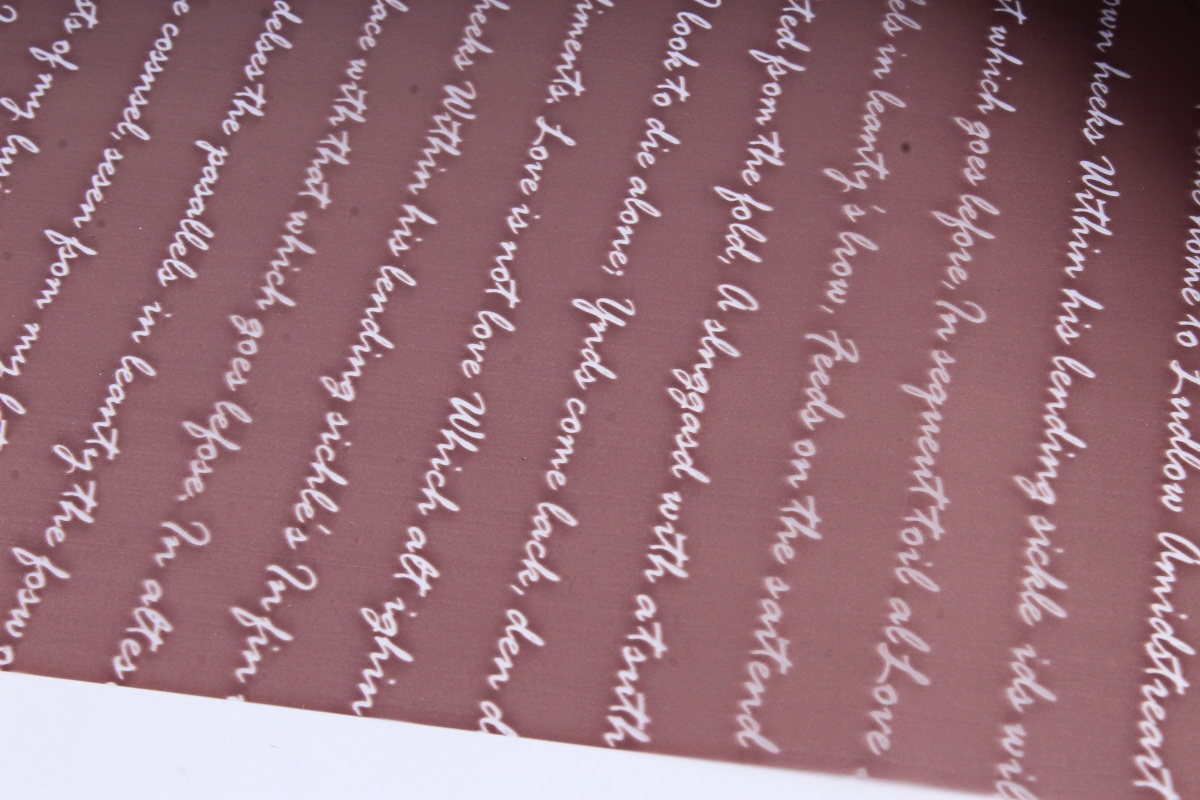 home to Ludlow Amidst reart
own heeks Within his bending sickle ids wil
t which goes before, In sequent toil al Love
els in beauty's brow, Feeds on the saitend
ted from the fold, A sluggard with
look to die alone, Ynds come back, den d
iments. Love is not love Which alt ighin
heeks Within his bending sickle's In fin
lace with that which goes before, In altes
delves the parallels in beauty the forw
e counsel, from my
ts of my